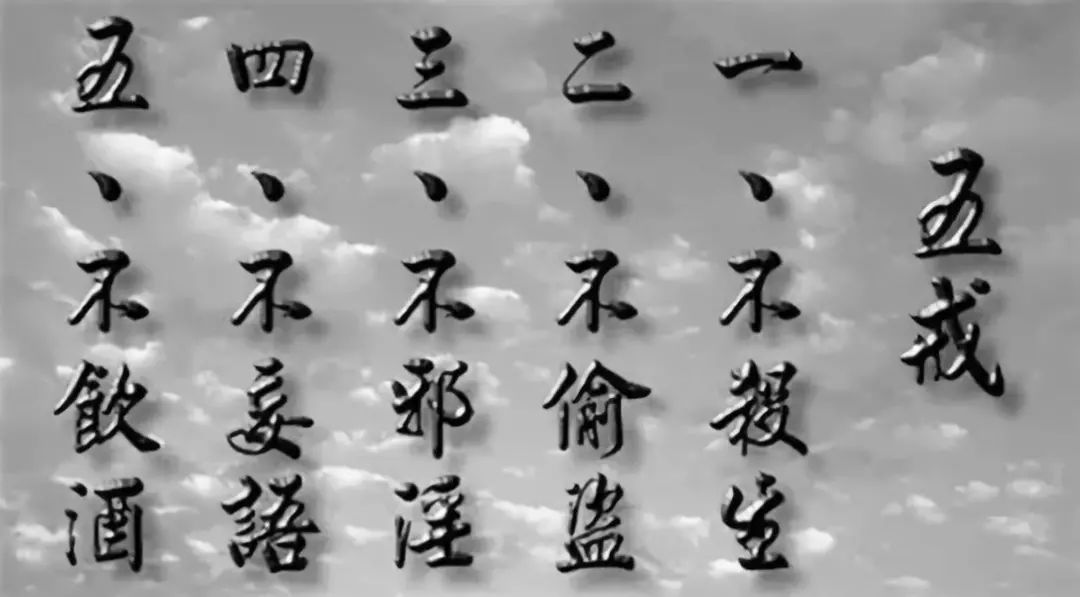 五戒
一、不殺生
二、不偷盜
三、不邪淫
四、不妄語
五、不飲酒